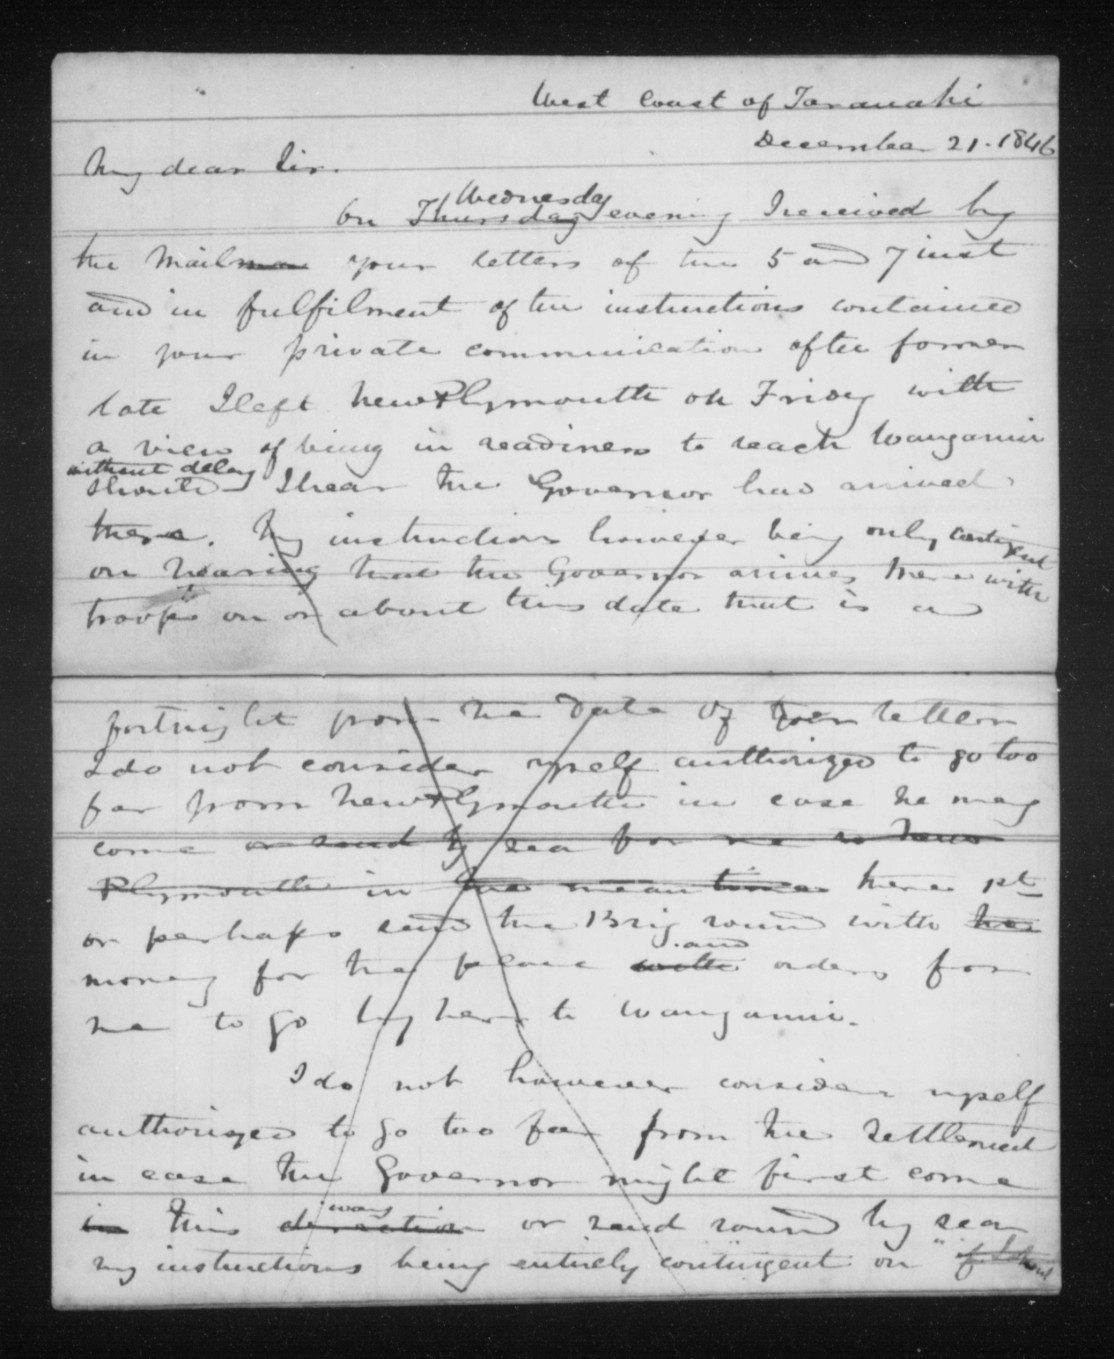 West Coast of Taranaki
December 21. 1846
My dear Sir.
Wednesday
On Thursday evening I received by
the Mailman your letters of the 5 and 7 inst
and in fulfilment of the instructions contained
in your private communication of the former
date I left New Plymouth on Friday with
a view of being in readiness to reach Wanganui
without delay
should I hear the Governor had arrived
there. My instructions however being only contingent
on hearing that the Governor arrives there with
troops on or about this date that is a
fortnight from the date of your letter
I do not consider myself authorized to go too
far from New Plymouth in case he may
come or send by sea for me to New
Plymouth in the mean time here 1st
or perhaps send the Brig round with her
and
money for the place with orders for
me to go by her to Wanganui.
I do not however consider myself
authorized to go too far from the settlement
in case the Governor might first come
way
in this direction or send round by sea
my instructions being entirely contingent on "if I should